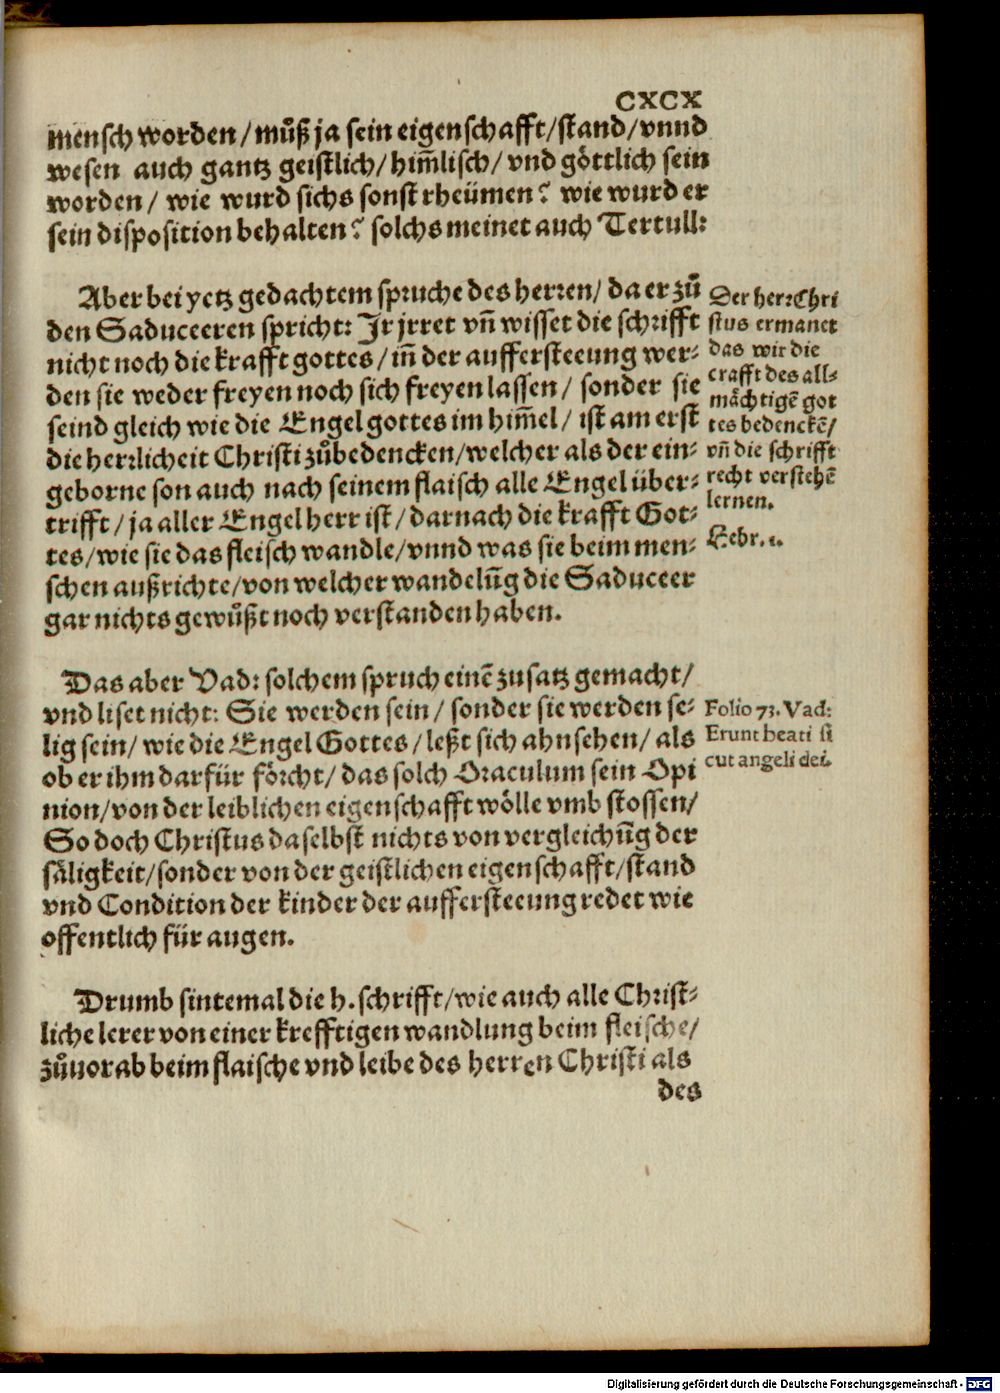 CXCX
mensch worden / můß ja sein eigenschafft / stand / vnnd
wesen auch gantz geistlich / him̃lisch / vnd göttlich sein
worden / wie wurd sichs sonst rheümen? wie wurd er
sein disposition behalten? solchs meinet auch Tertull:
Aber bei yetz gedachtem spruche des herren / da er zů
den Saduceeren spricht: Ir jrret vn̄ wisset die schrifft
nicht noch die krafft gottes / in̄ der auffersteeung wer-
den sie weder freyen noch sich freyen lassen / sonder sie
seind gleich wie die Engel gottes im him̃el / ist am erst
die herrlicheit Christi zůbedencken / welcher als der ein-
geborne son auch nach seinem flaisch alle Engel über-
trifft / ja aller Engel herr ist / darnach die krafft Got-
tes / wie sie das fleisch wandle / vnnd was sie beim men-
schen außrichte / von welcher wandelūg die Saduceer
gar nichts gewůßt noch verstanden haben.
Der herr Chri
stus ermanet
das wir die
crafft des all-
mächtigē got
tes bedenckē /
vn̄ die schrifft
recht verstehē
lernen.
Hebr. 1.
Das aber Vad: solchem spruch einē zusatz gemacht /
vnd liset nicht: Sie werden sein / sonder sie werden se-
lig sein / wie die Engel Gottes / leßt sich ahnsehen / als
ob er ihm darfür förcht / das solch Oraculum sein Opi
nion / von der leiblichen eigenschafft wölle vmb stossen /
So doch Christus daselbst nichts von vergleichūg der
säligkeit / sonder von der geistlichen eigenschafft / stand
vnd Condition der kinder der auffersteeung redet wie
offentlich für augen.
Folio 73. Vad:
Erunt beati si
cut angeli dei.
Drumb sintemal die h. schrifft / wie auch alle Christ-
liche lerer von einer krefftigen wandlung beim fleische /
zůuorab beim flaische vnd leibe des herren Christi als
des
Digitalisierung gefördert durch die Deutsche Forschungsgemeinschaft - DFG